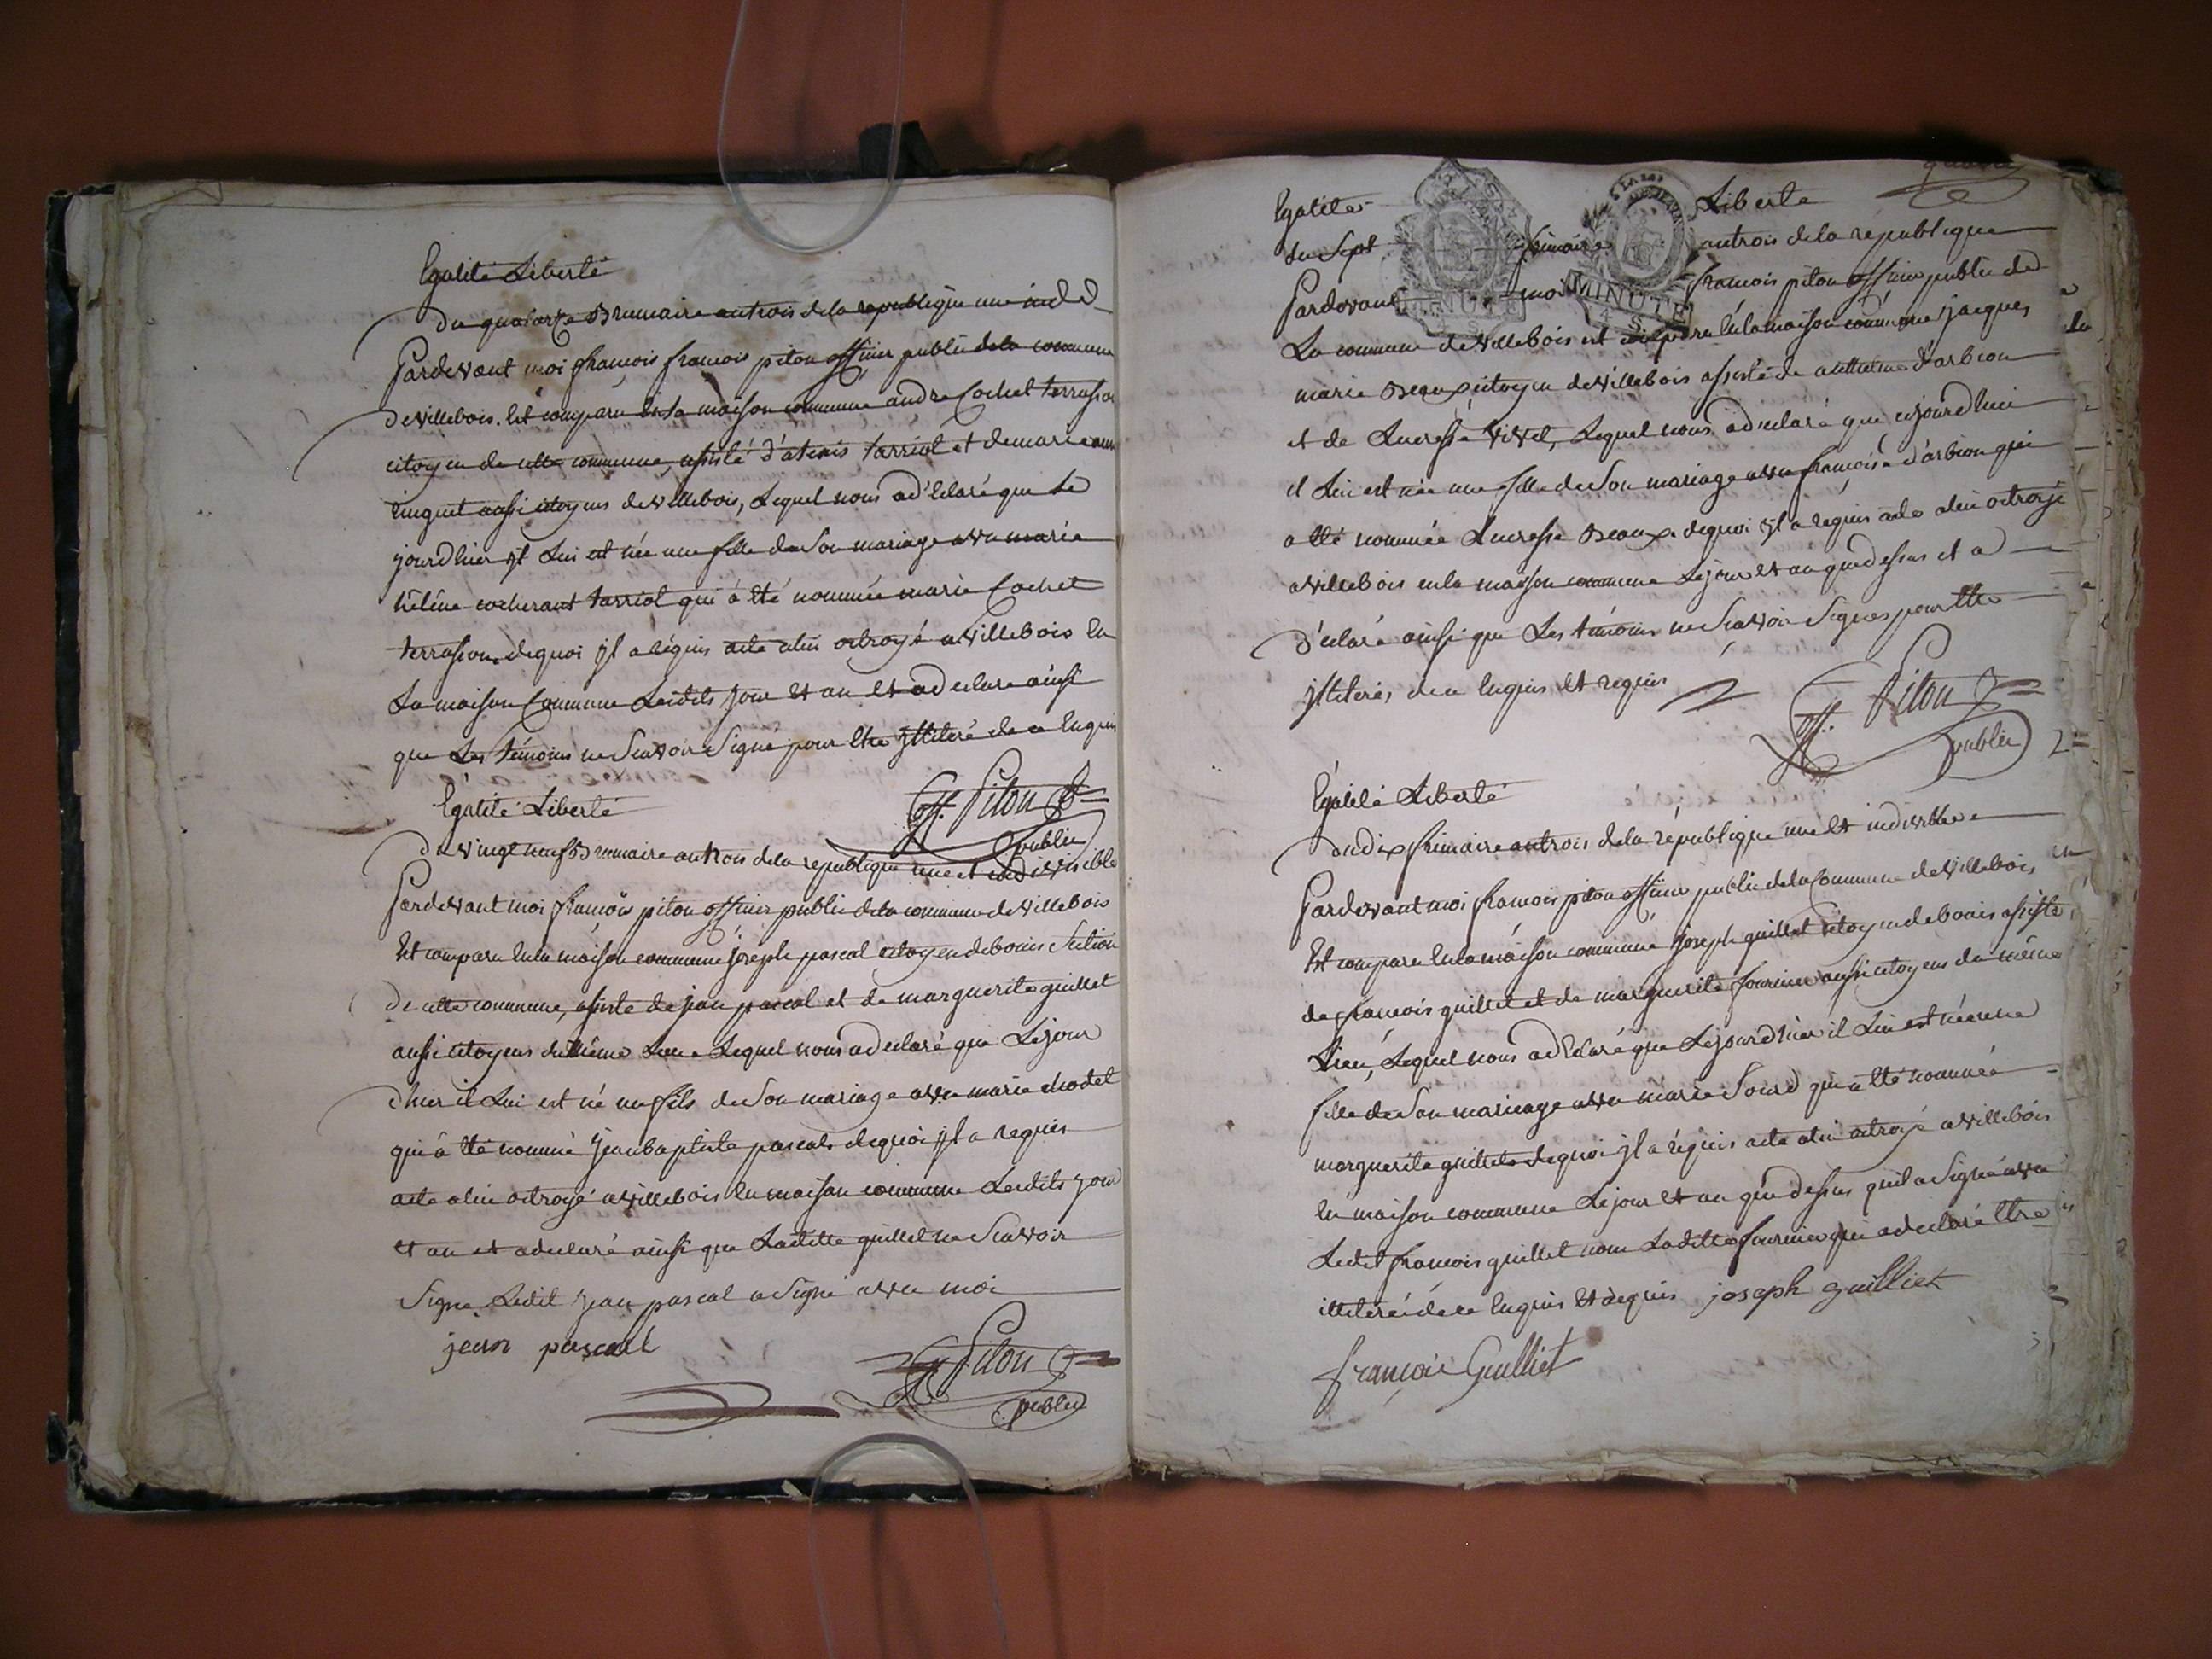 Egalité Liberté
Du quatorze Brumaire an trois de la republique une ind
Pardevant moi francois francois piton officier public de la commune
de villebois. Est comparu En la maison commune andre Cochet terrasson
citoyen de cette commune, assisté d'atenis tarriol et de marie
aussi citoyens de villebois, Lequel nous a déclaré que Le
jourdhier jl Lui est née une fille de Son mariage avec marie
héléne tarriol qui à été nommée marie Cochet
terrasson. dequoi jl a réquis acte alui octroyé a villebois En
La maison Commune Lesdits jour Et an Et a declare ainsi
que Les témoins ne Scavoir Signe pour Etre jlliteré de ce Enquis
off. Piton
public
Egalité Liberté
Du vingt neuf Brumaire an trois de la republique une et indivisible
Pardevant moi francois piton officier public de la commune de villebois
Est comparu En la maison commune joseph pascal citoyen de bouis Section
de cette commune, assiste de jean pascal et de marguerite guillet
aussi citoyens du même Lieu Lequel nous a declaré que Lejour
dhier il Lui est né un fils de Son mariage avec marie chodet
qui à été nommé jean baptiste pascal. dequoi jl a requis
acte alui octroyé a villebois En maison commune Lesdits jour
et an et a declaré ainsi que Laditte guillet ne Scavoir
Signe Ledit jean pascal a Signé avec moi
jean pascal
off Piton
public
Egalité Liberte
du Sept frimaire an trois de la republique
Pardevant moi francois piton officier public de
MINUTE
4 S.
MINUTE
4 S.
La commune de villebois est comparu En la maison commune jacques
marie Beaux citoyen de villebois assisté de anthelme d'arbeon
et de Lucresse vivet, Lequel nous a declaré que cejourdhui
il Lui est née une fille de Son mariage avec françoise d'arbeon qui
a été nommée Lucresse Beaux. dequoi jl a réquis acte alui octroyé
a villebois en la maison commune Lejour et an que dessus et a
déclaré ainsi que Les témoins ne Scavoir Signes pour Etre
jlliterés de ce Enquis Et requis
off. Piton
public
Egalité Liberté
du dix frimaire an trois de la république une et indivisible
Pardevant moi francois piton officier public de la Commune de villebois
Est comparu En la maison commune joseph guillet citoyen de bouis assisté
de francois guillet et de marguerite fournier aussi citoyens du même
Lieu, Lequel nous a déclaré que Lejourdhier il Lui est née une
fille de Son mariage avec marie Sourd qui a été nommée
marguerite guillet. dequoi jl a réquis acte alui octroyé a villebois
En maison commune Le jour et an que dessus qu'il a Signé avec
Ledit francois guillet non Laditte fournier qui a declaré Etre
illiteré de ce Enquis Et requis joseph guilliet
françois Guilliet